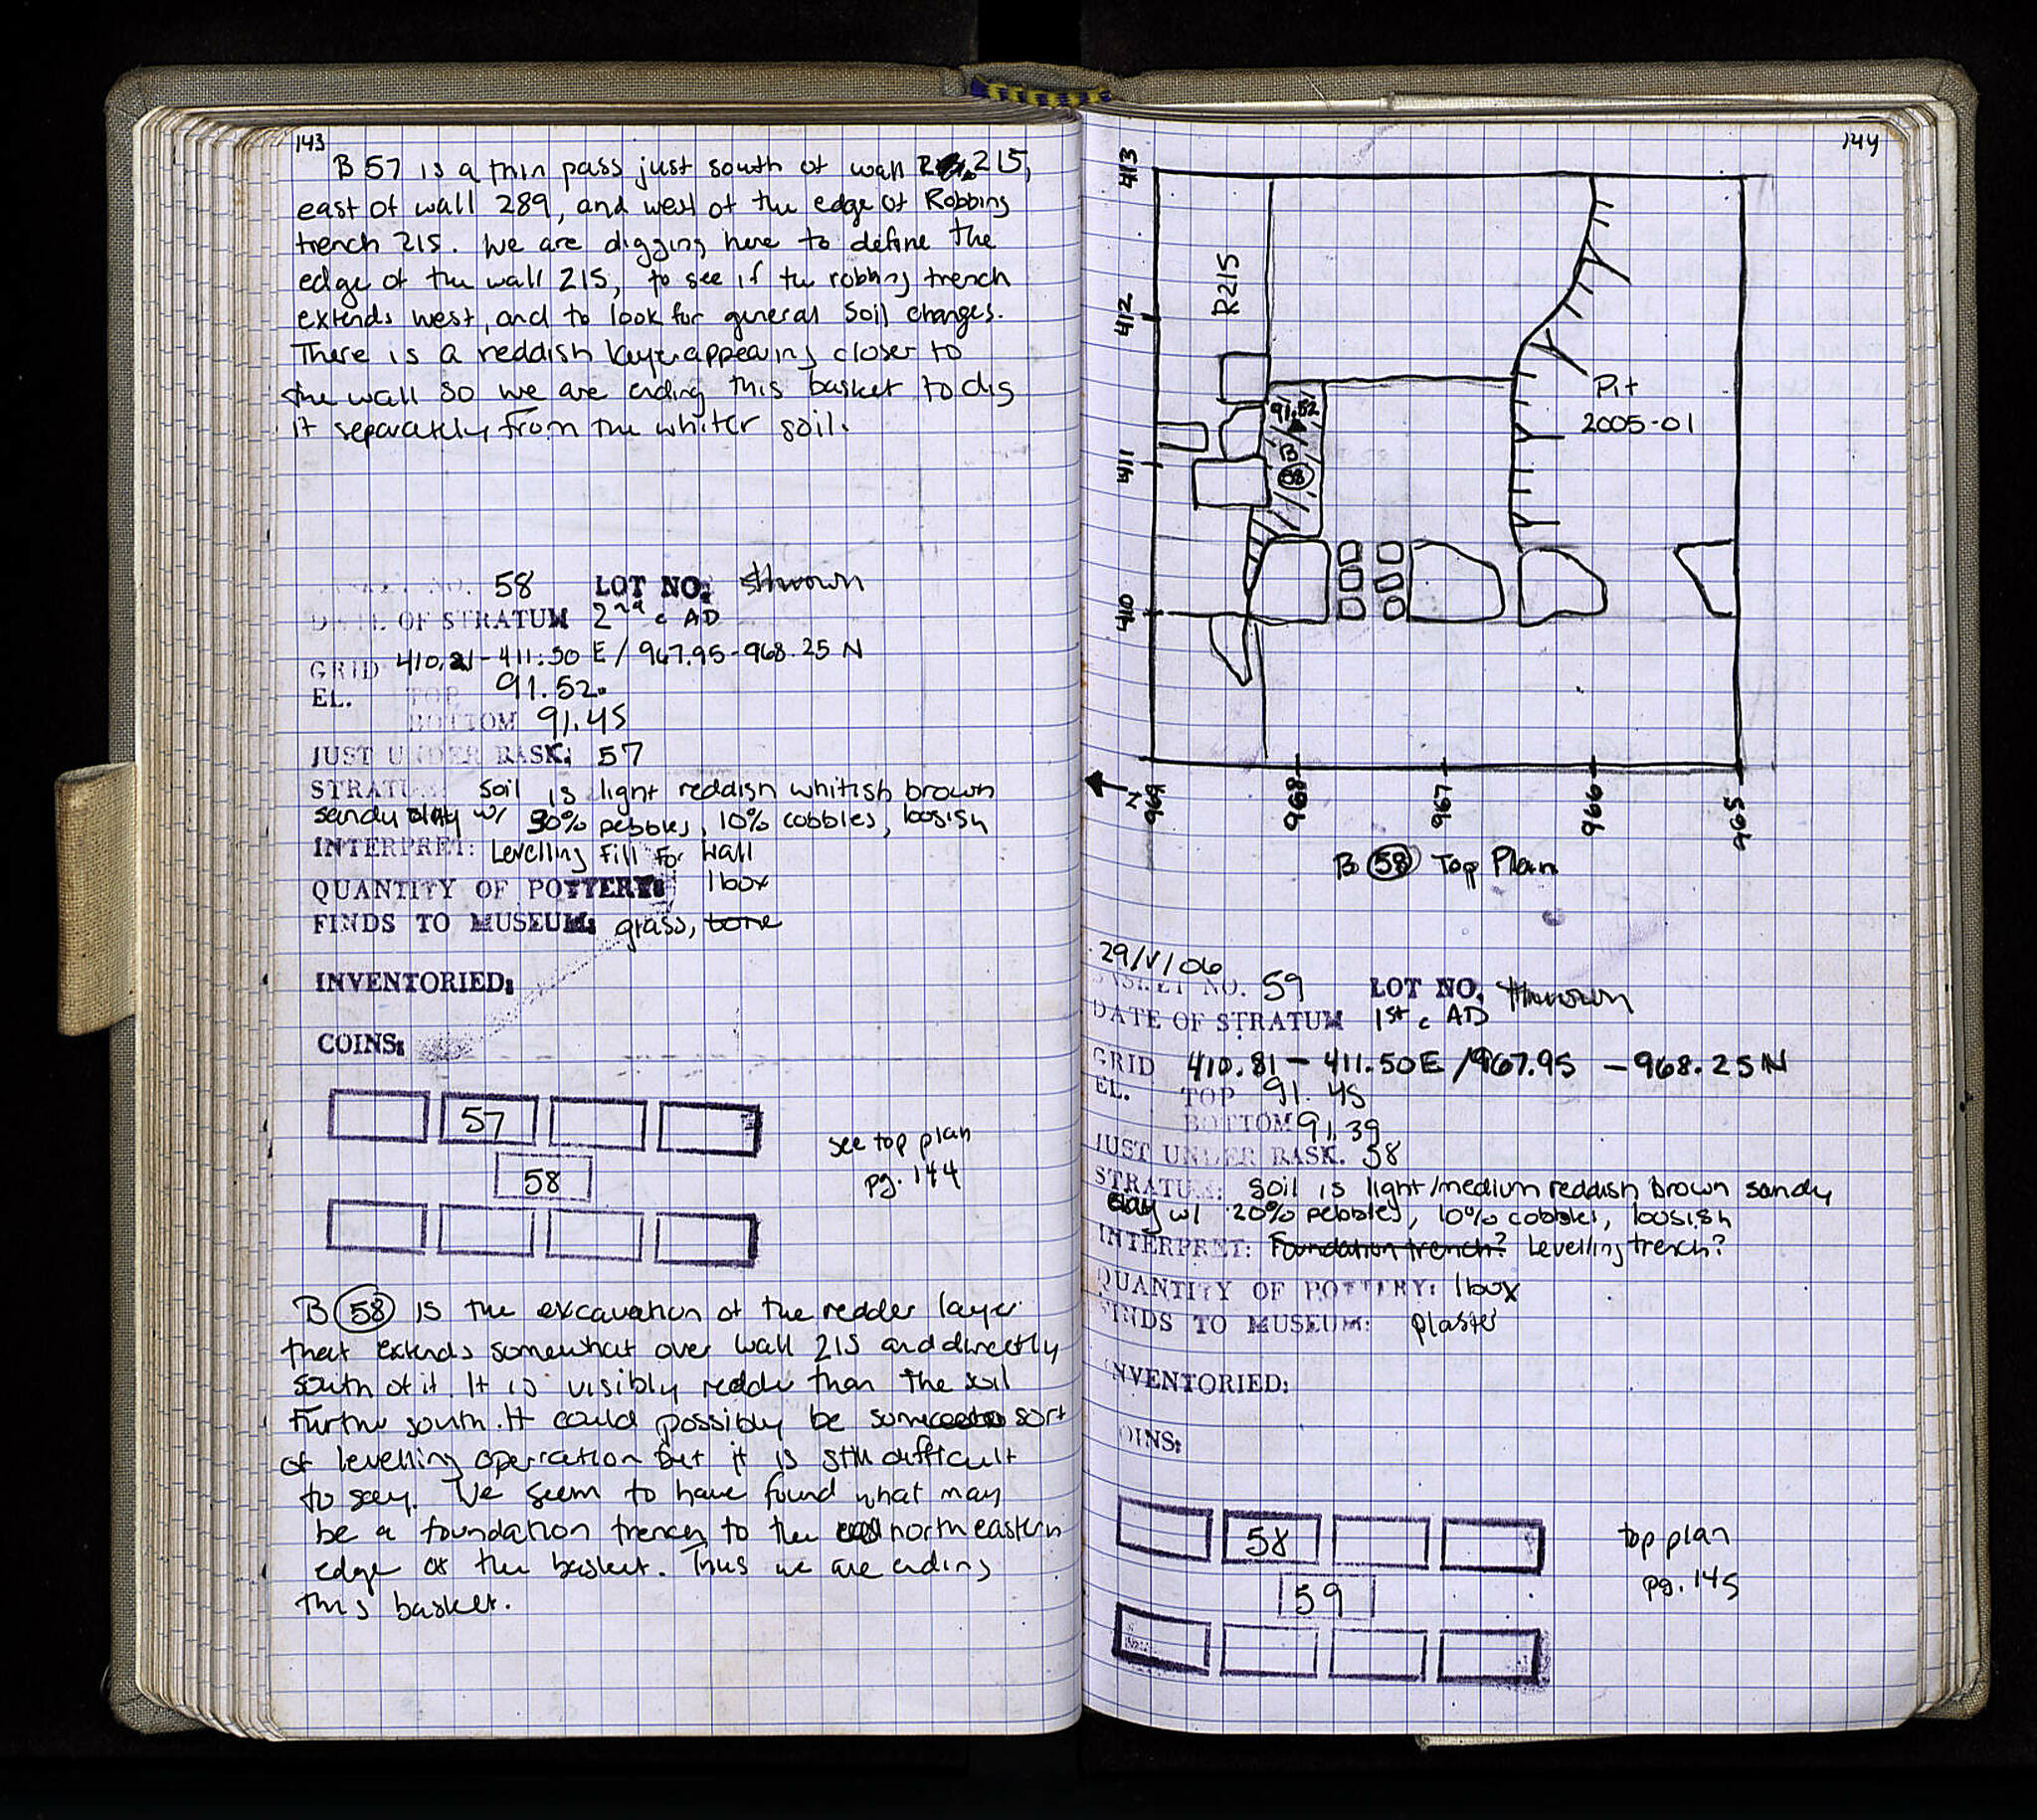 143
B 57 is a thin pass just south of wall 215,
east of wall 289, and west of the edge of Robbing
trench 215. We are digging here to define the
edge of the wall 215, to see if the robbing trench
extends west, and to look for general soil changes.
There is a reddish layer appearing closer to
the wall so we are ending this basket to dig
it separately from the whiter soil.
NO. 58 LOT NO. thrown
DATE OF STRATUM 2nd c AD
GRID 410.81-411.50 E / 967.95-968.25 N
EL. TOP 91.52
BOTTOM 91.45
JUST UNDER BASK. 57
STRATUM: Soil is light reddish whitish brown
sandy clay w/ 30% pebbles, 10% cobbles, loosish
INTERPRET: Levelling Fill For Wall
QUANTITY OF POTTERY: 1 box
FINDS TO MUSEUM: glass, bone
INVENTORIED:
COINS:
57
58
see top plan
pg. 144
B 58 is the excavation of the redder layer
that extends somewhat over wall 215 and directly
south of it. It is visibly redder than the soil
further south. It could possibly be some sort
of levelling operation but it is still difficult
to say. We seem to have found what may
be a foundation trench to the north eastern
edge of the basket. Thus we are ending
this basket.
144
413
412
411
410
R215
91.52
B
58
Pit
2005-01
N
969
968
967
966
965
B 58 Top Plan
29/V/06
BASKET NO. 59 LOT NO. thrown
DATE OF STRATUM 1st c AD
GRID 410.81 - 411.50 E / 967.95 - 968.25 N
EL. TOP 91.45
BOTTOM 91.39
JUST UNDER BASK. 58
STRATUM: Soil is light/medium reddish brown sandy
clay w/ 20% pebbles, 10% cobbles, loosish
INTERPRET: Foundation trench? Levelling trench?
QUANTITY OF POTTERY: 1 box
FINDS TO MUSEUM: plaster
INVENTORIED:
COINS:
58
59
top plan
pg. 145